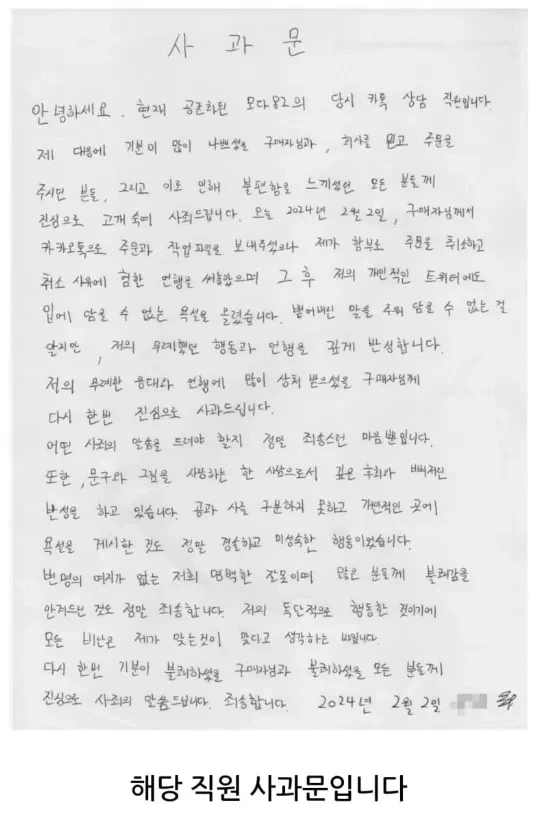 사 과 문
안녕하세요. 현재 공론화된 모다82의 당시 카톡 상담 직원입니다.
제 대응에 기분이 많이 나쁘셨을 구매자님과, 회사를 믿고 주문을
주시던 분들, 그리고 이로 인해 불편함을 느끼셨던 모든 분들께
진심으로 고개 숙여 사죄드립니다. 오늘 2024년 2월 2일, 구매자님께서
카카오톡으로 주문과 작업파일을 보내주셨으나 제가 함부로 주문을 취소하고
취소 사유에 험한 언행을 써놓았으며 그 후 저의 개인적인 트위터에도
입에 담을 수 없는 욕설을 올렸습니다. 뱉어내인 말을 주워 담을 수 없는 걸
알지만, 저의 무례했던 행동과 언행을 깊게 반성합니다.
저의 무례한 응대와 언행에 많이 상처 받으셨을 구매자님께
다시 한번 진심으로 사과드립니다.
어떤 사죄의 말씀을 드려야 할지 정말 죄송스런 마음뿐입니다.
또한, 문구와 그림을 사랑하는 한 사람으로서 깊은 후회와 뼈저린
반성을 하고 있습니다. 공과 사를 구분하지 못하고 개인적인 곳에
욕설을 게시한 것도 정말 경솔하고 미성숙한 행동이었습니다.
변명의 여지가 없는 저희 명백한 잘못이며 많은 분들께 불쾌감을
안겨드린 것도 정말 죄송합니다. 저의 독단적으로 행동한 것이기에
모든 비난은 제가 맞는것이 맞다고 생각하는 바입니다.
다시 한번 기분이 불쾌하셨을 구매자님과 불쾌하셨을 모든 분들께
진심으로 사죄의 말씀드립니다. 죄송합니다. 2024년 2월 2일
해당 직원 사과문입니다